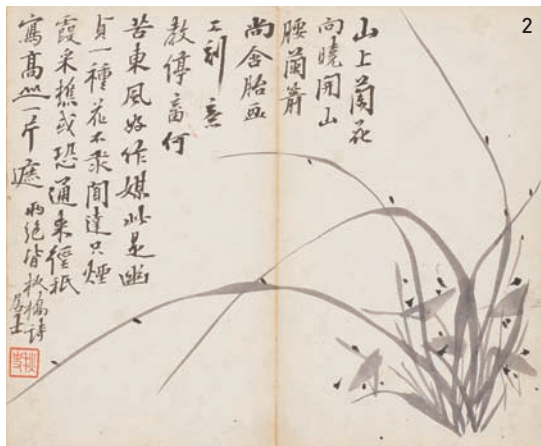 2
山上蘭花
向曉開山
腰蘭箭
尚含胎畫
工刻意
教停畜何
苦東風好作媒此是幽
貞一種花不求聞達只煙
霞采樵或恐通來徑祇
寫高山一片遮 兩絕皆板橋詩
居士